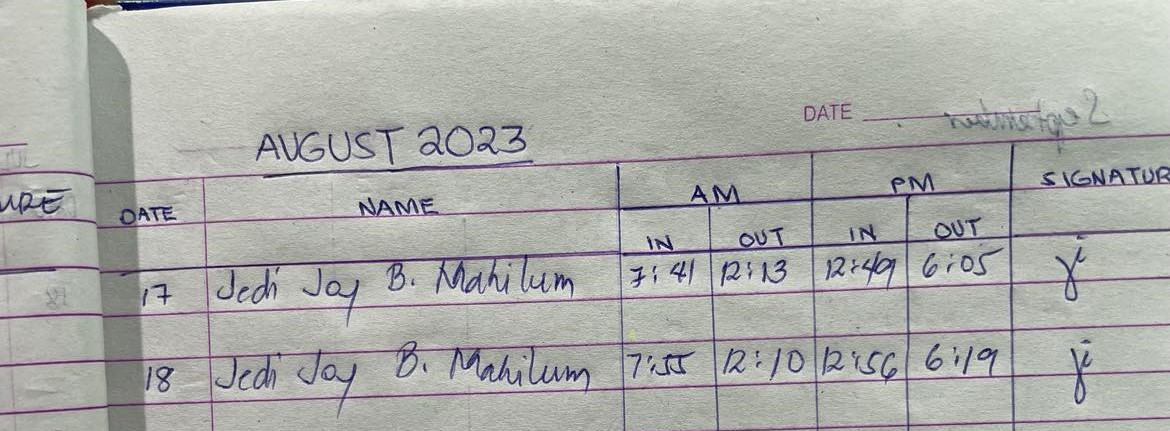 DATE
AUGUST 2023
URE DATE NAME AM PM SIGNATUR
IN OUT IN OUT
17 Jedi Joy B. Mahilum 7:41 12:13 12:49 6:05
18 Jedi Joy B. Mahilum 7:55 12:10 12:56 6:19